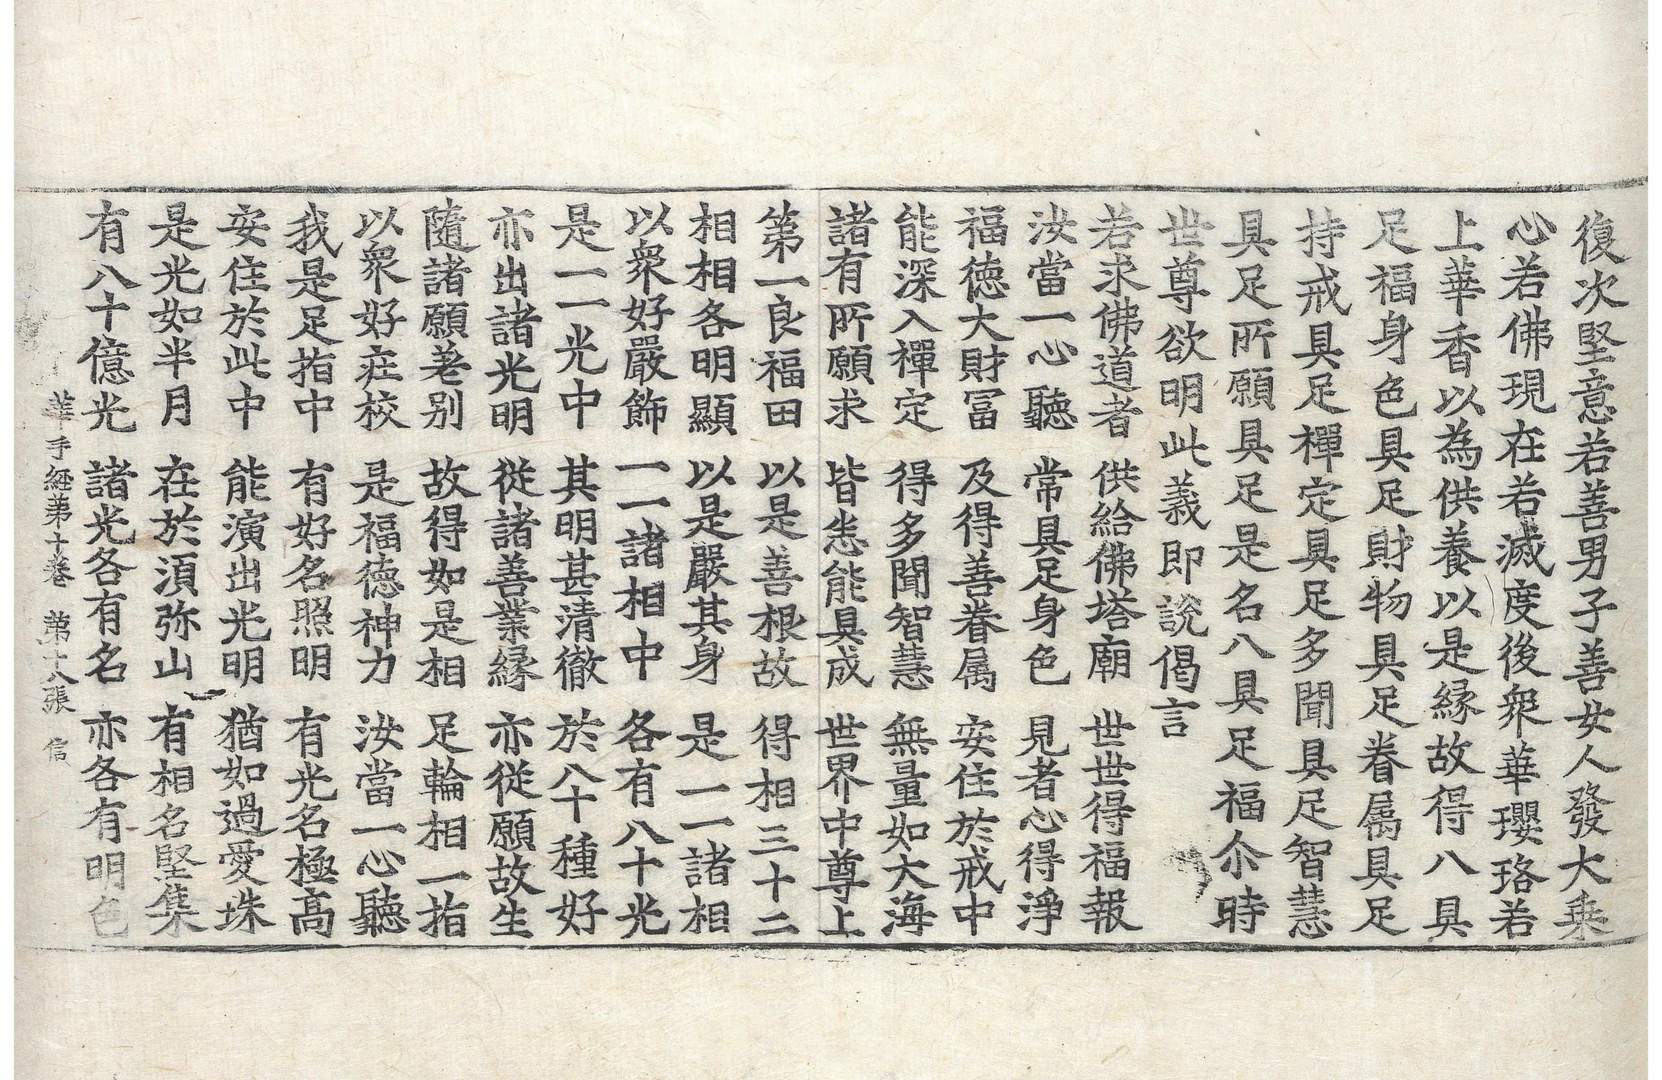 復次堅意若善男子善女人發大乗
心若佛現在若滅度後衆華瓔珞若
上華香以為供養以是縁故得八具
足福身色具足財物具足眷屬具足
持戒具足禪定具足多聞具足智慧
具足所願具足是名八具足福尒時
世尊欲明此義即說偈言
若求佛道者 供給佛塔廟 世世得福報
汝當一心聽 常具足身色 見者心得淨
福徳大財冨 及得善眷属 安住於戒中
能深入禪定 得多聞智慧 無量如大海
諸有所願求 皆悉能具成 世界中尊上
第一良福田 以是善根故 得相三十二
相相各明顯 以是嚴其身 是一一諸相
以衆好嚴飾 一一諸相中 各有八十光
是一一光中 其明甚清徹 於八十種好
亦出諸光明 從諸善業縁 亦從願故生
隨諸願差别 故得如是相 足輪相一指
以衆好莊校 是福徳神力 汝當一心聽
我是足指中 有好名照明 有光名極髙
安住於此中 能演出光明 猶如過愛珠
是光如半月 在於湏弥山 有相名堅集
有八十億光 諸光各有名 亦各有明色
華手經第十卷 第十八張 信